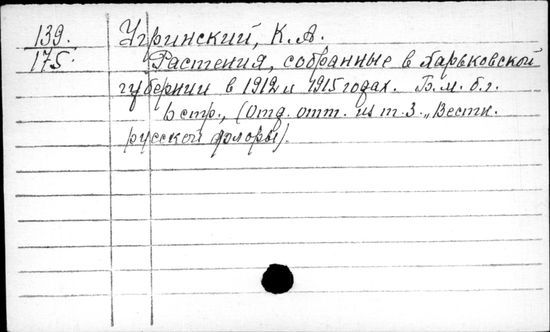 139. Угринский, К. А.
175. Растения, собранные в Харьковской
губернии в 1912 и 1915 годах. Б. м. б. г.
6 стр., (Отд. отт. из т. 3. „Вестн.
русской флоры).